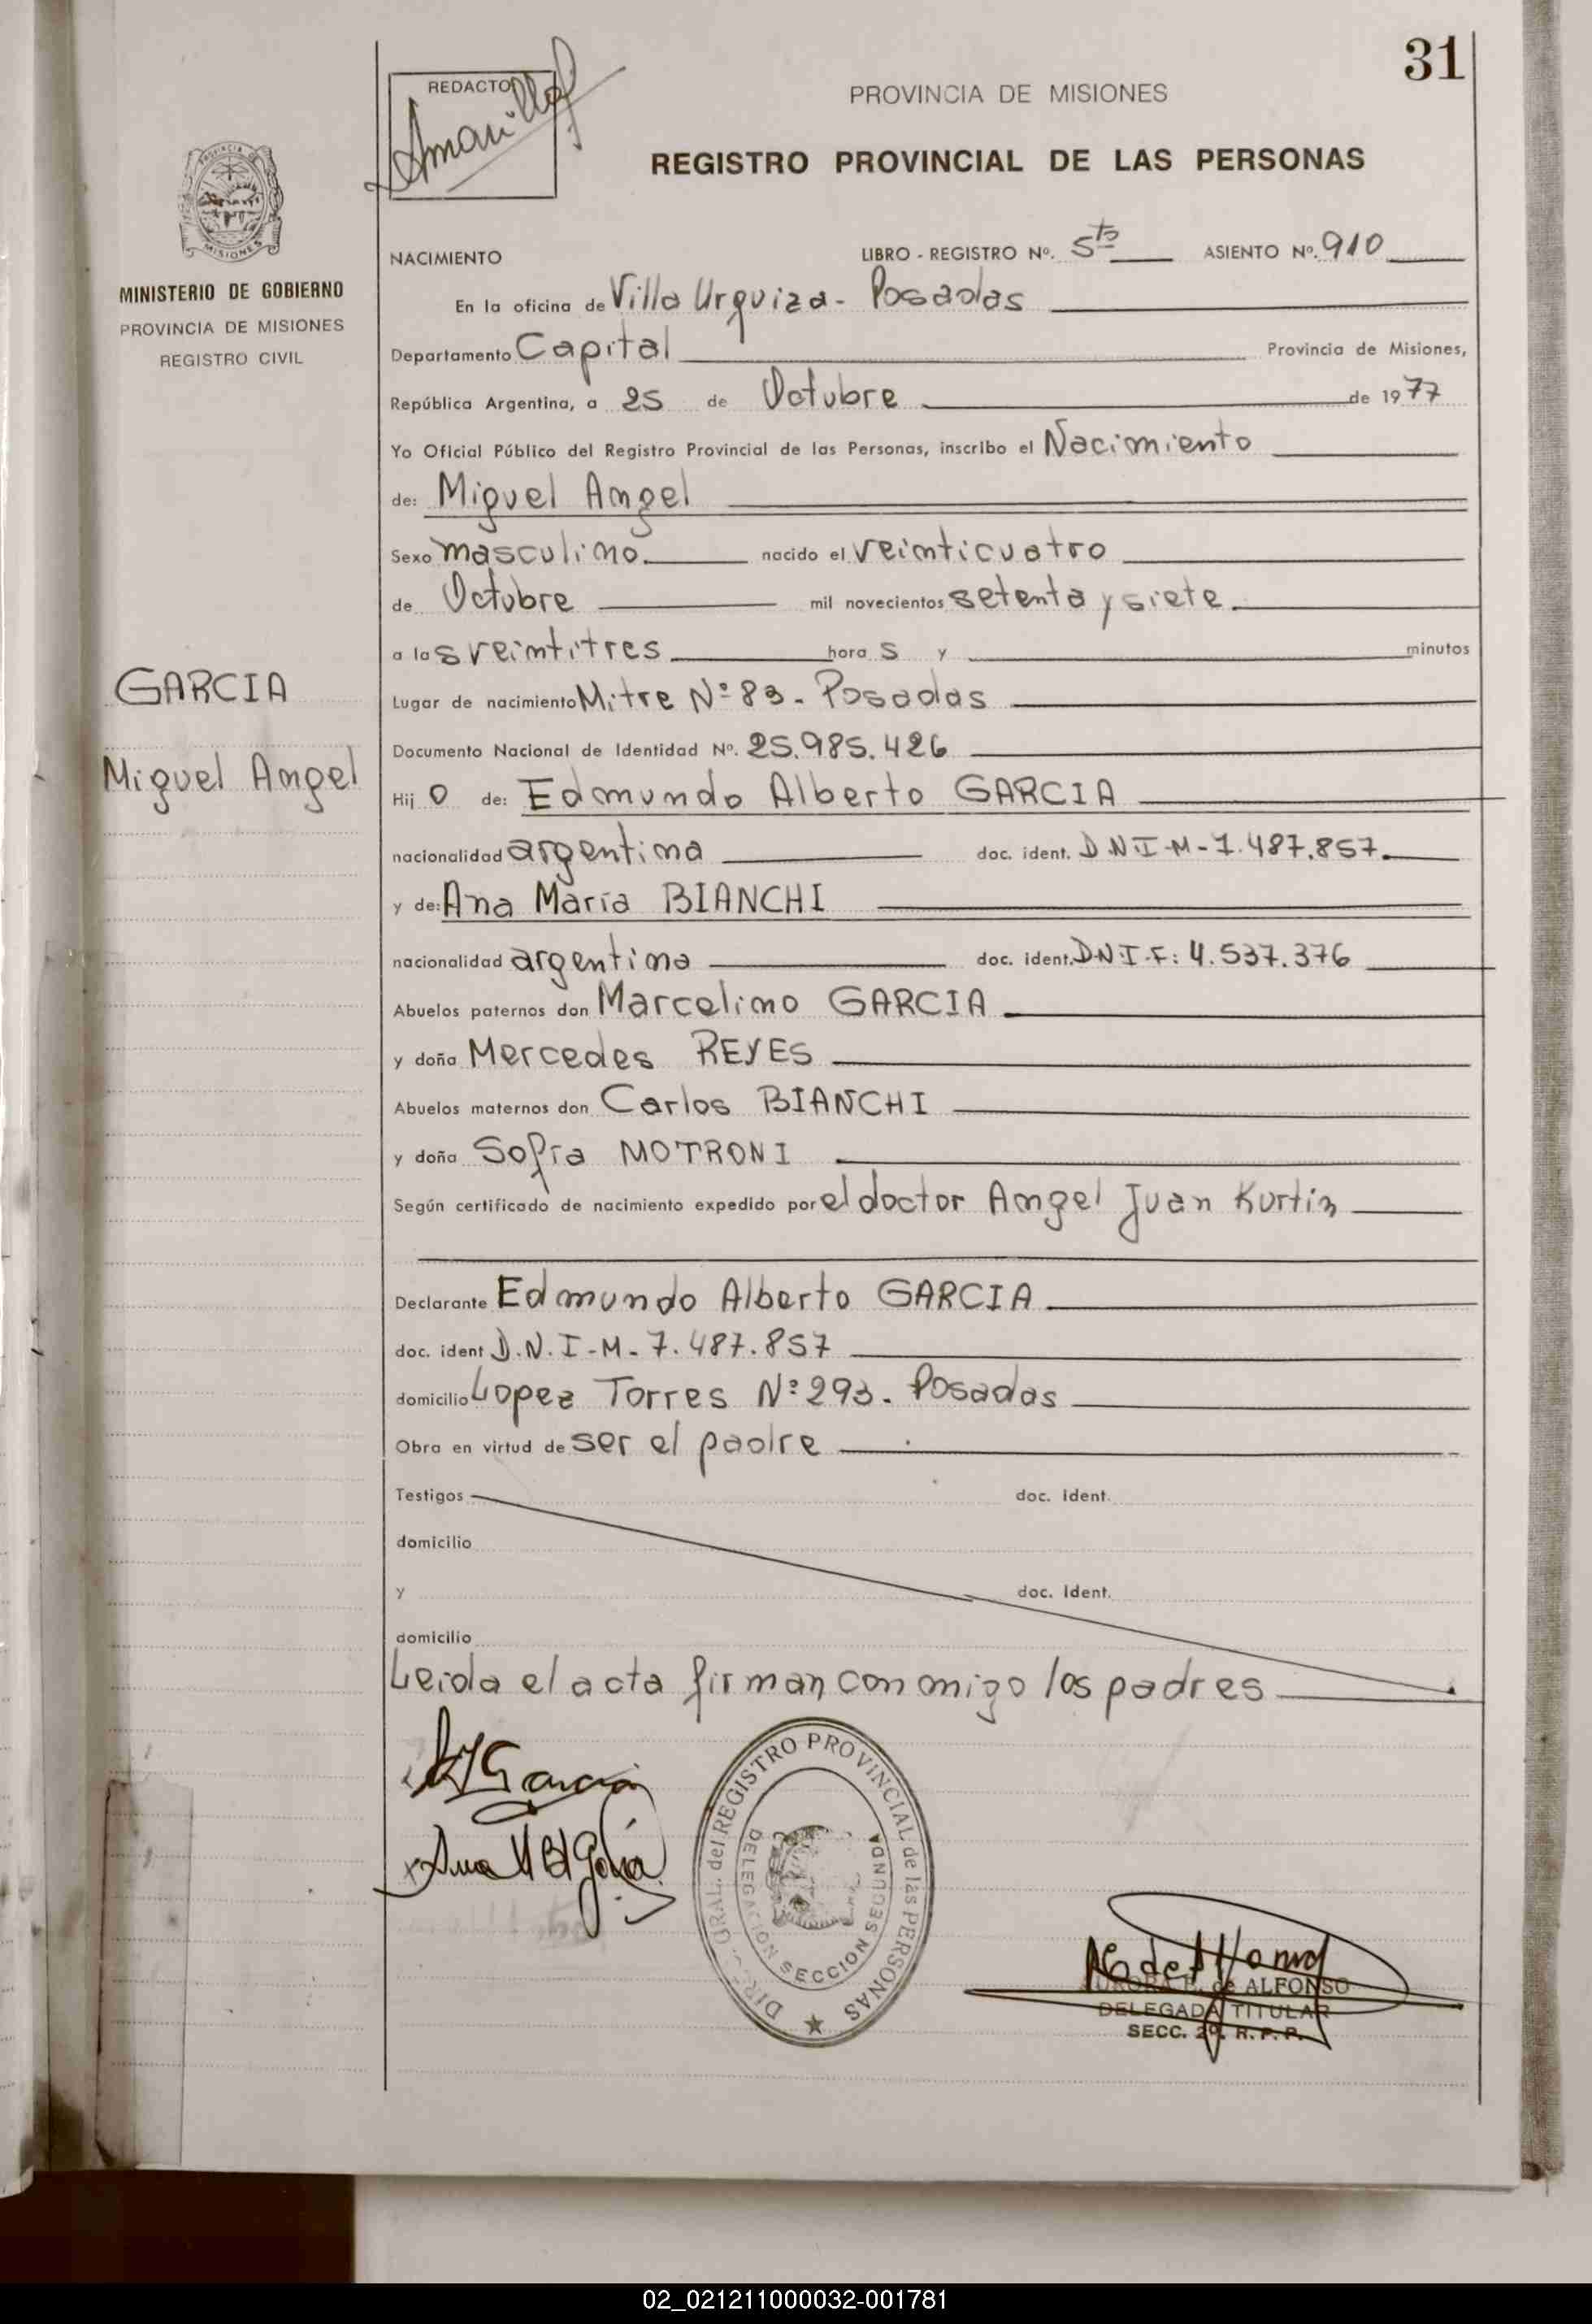 31
REDACTO
Amarilla
PROVINCIA DE MISIONES
REGISTRO PROVINCIAL DE LAS PERSONAS
PROVINCIA DE
MISIONES
MINISTERIO DE GOBIERNO
PROVINCIA DE MISIONES
REGISTRO CIVIL
NACIMIENTO LIBRO - REGISTRO Nº. 5to ASIENTO Nº. 910
En la oficina de Villa Urquiza - Posadas
Departamento Capital Provincia de Misiones,
República Argentina, a 25 de Octubre de 1977
Yo Oficial Público del Registro Provincial de las Personas, inscribo el Nacimiento
de: Miguel Angel
Sexo masculino. nacido el veinticuatro
de Octubre mil novecientos setenta y siete.
a las veintitres horas y minutos
GARCIA
Miguel Angel
Lugar de nacimiento Mitre Nº 83 - Posadas
Documento Nacional de Identidad Nº. 25.985.426
Hijo de: Edmundo Alberto GARCIA
nacionalidad argentina doc. ident. D.N.I-M-7.487.857.
y de: Ana María BIANCHI
nacionalidad argentina doc. ident. D.N.I.F: 4.537.376
Abuelos paternos don Marcelino GARCIA
y doña Mercedes REYES
Abuelos maternos don Carlos BIANCHI
y doña Sofía MOTRONI
Según certificado de nacimiento expedido por el doctor Angel Juan Kurtin
Declarante Edmundo Alberto GARCIA
doc. ident D.N.I-M-7.487.857
domicilio Lopez Torres Nº 293. Posadas
Obra en virtud de ser el padre
Testigos doc. ident.
domicilio
y doc. ident.
domicilio
Leida el acta firman conmigo los padres
Garcia
Ana M B d Garcia
DIR. GRAL. del REGISTRO PROVINCIAL de las PERSONAS
DELEGACION SECCION SEGUNDA
AURORA E. de ALFONSO
DELEGADA TITULAR
SECC. 2º. R. P. P.
02_021211000032-001781